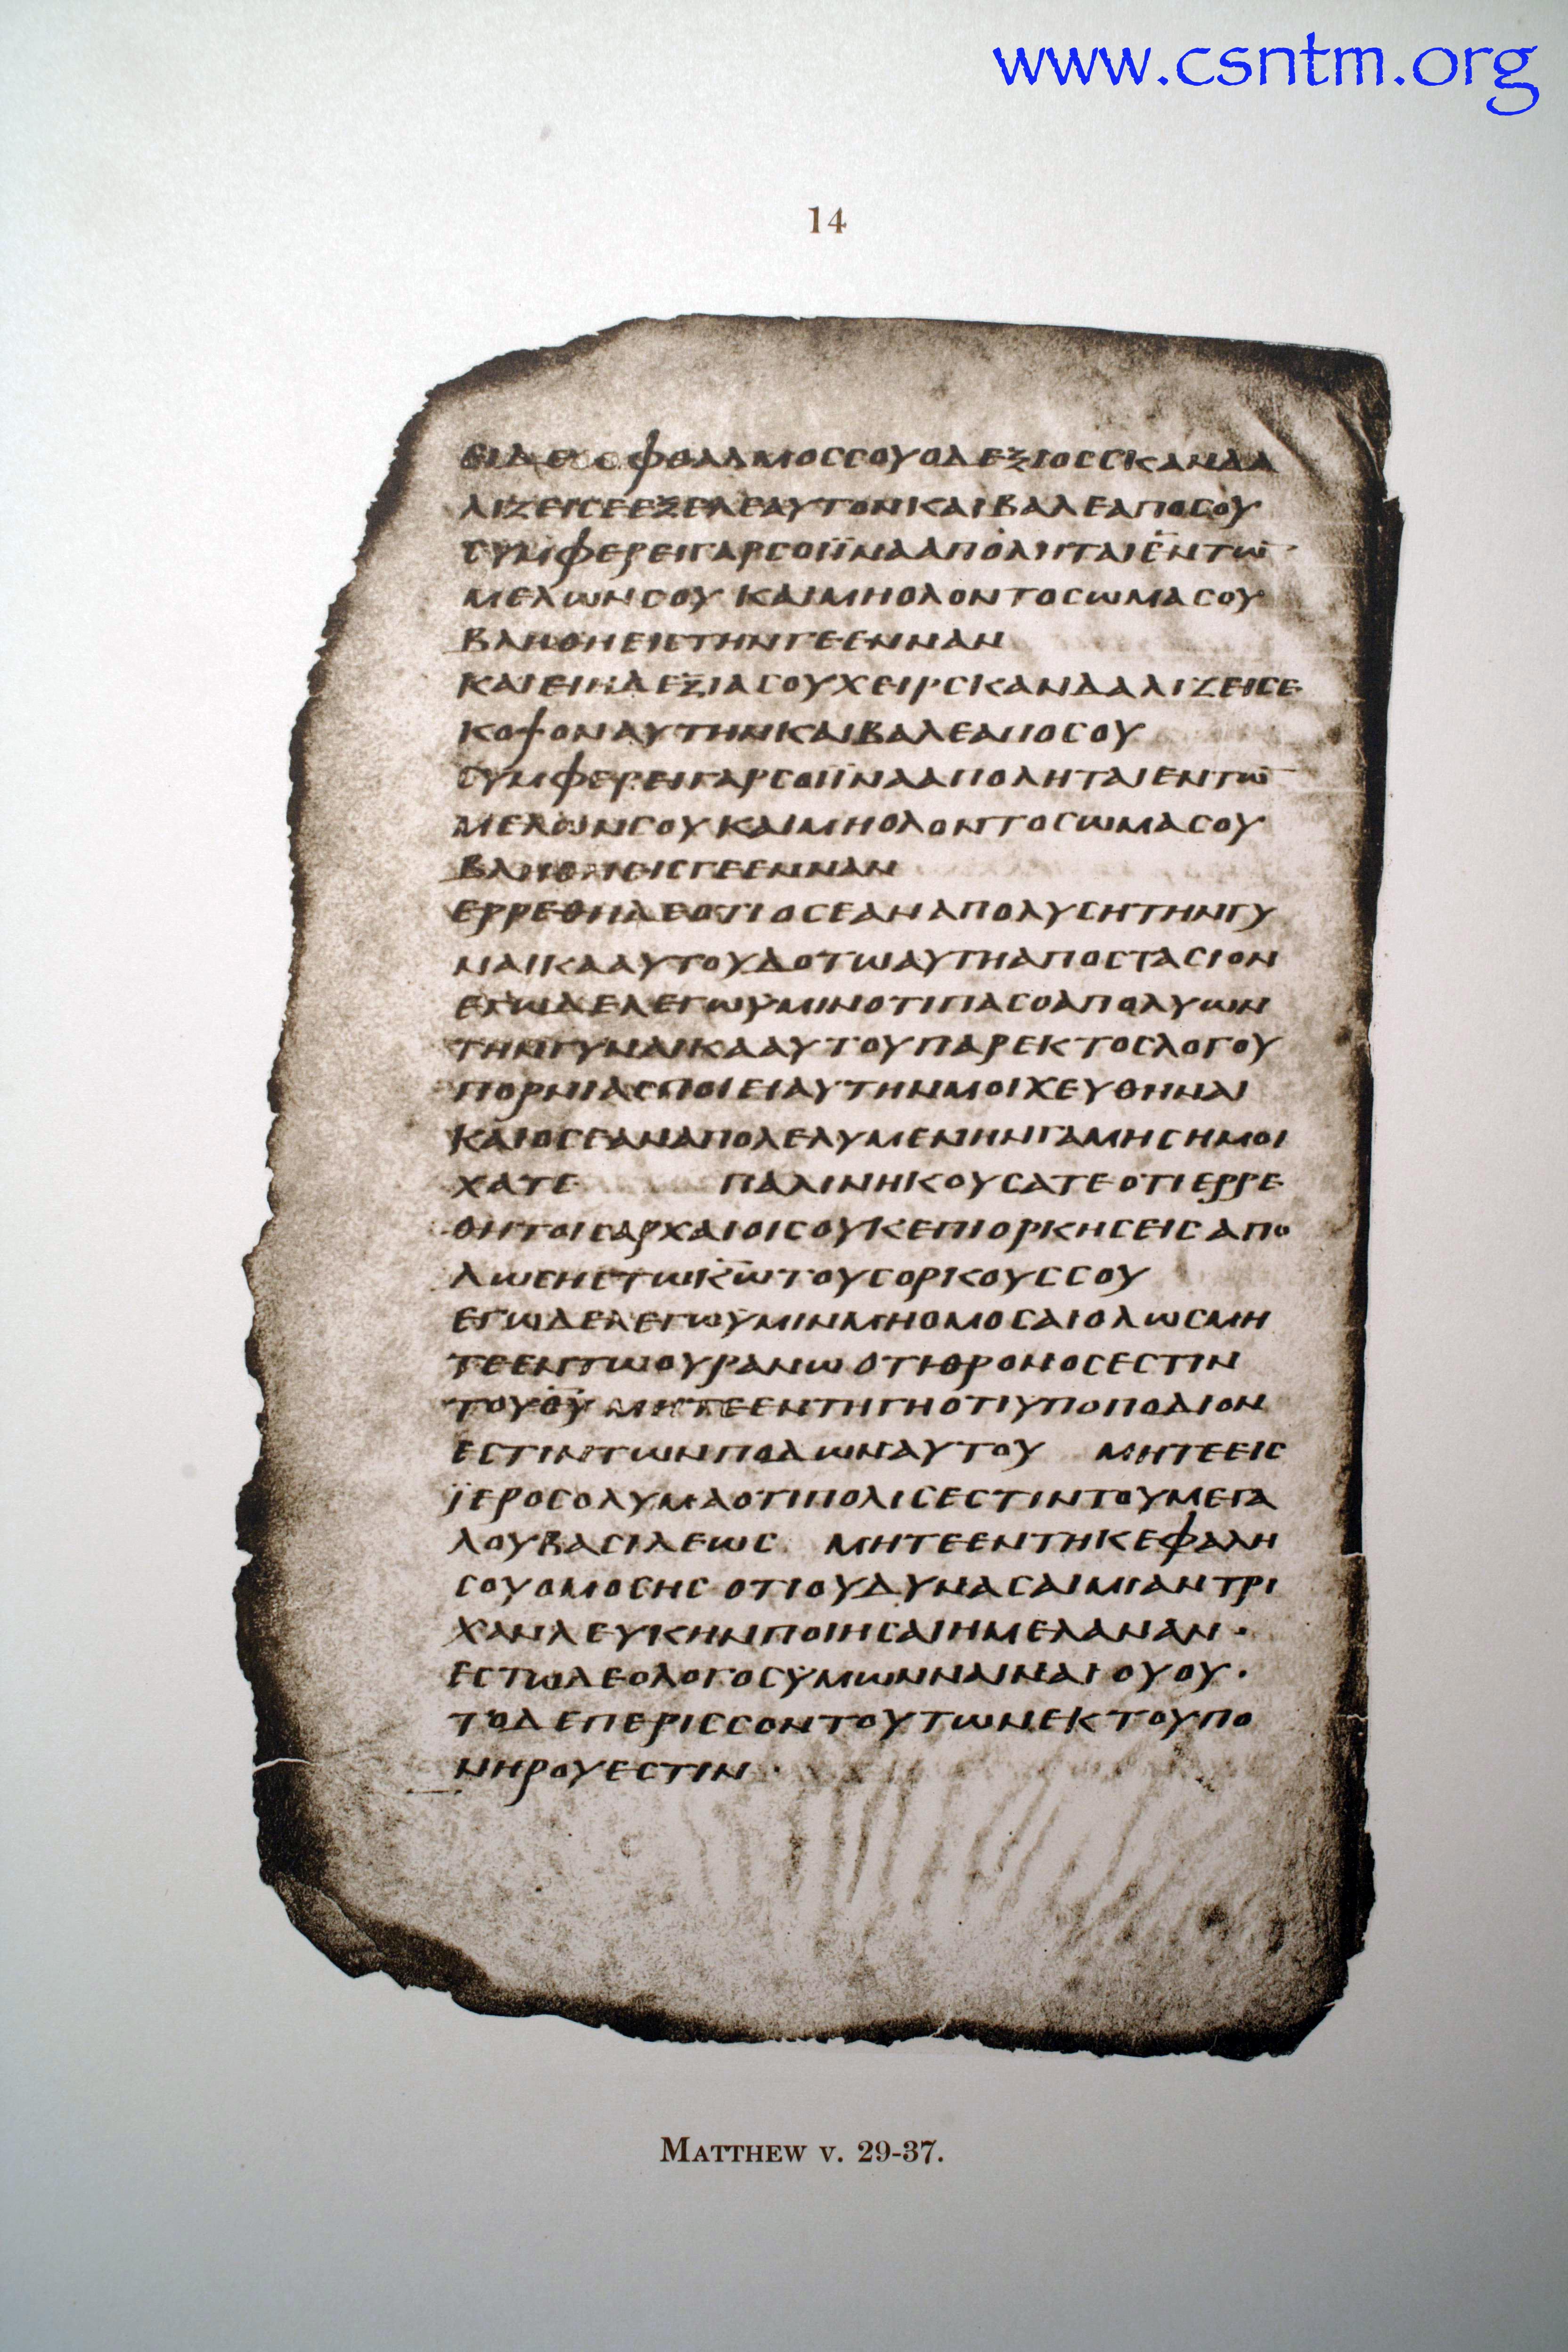 www.csntm.org
14
ΕΙΔΕΟΟΦΘΑΛΜΟССΟΥΟΔΕΞΙΟССΚΑΝΔΑ
ΛΙΖΕΙСΕΕΞΕΛΕΑΥΤΟΝΚΑΙΒΑΛΕΑΠΟСΟΥ
СΥΜΦΕΡΕΙΓΑΡСΟΙΪΝΑΑΠΟΛΗΤΑΙΕΝΤΩ̅
ΜΕΛΩΝСΟΥ ΚΑΙΜΗΟΛΟΝΤΟСΩΜΑСΟΥ
ΒΛΗΘΗΕΙСΤΗΝΓΕΕΝΝΑΝ
ΚΑΙΕΙΗΔΕΞΙΑСΟΥΧΕΙΡСΚΑΝΔΑΛΙΖΕΙСΕ
ΚΟΨΟΝΑΥΤΗΝΚΑΙΒΑΛΕΑΠΟСΟΥ
СΥΜΦΕΡΕΙΓΑΡСΟΙΪΝΑΑΠΟΛΗΤΑΙΕΝΤΩ̅
ΜΕΛΩΝСΟΥΚΑΙΜΗΟΛΟΝΤΟСΩΜΑСΟΥ
ΒΛΗΘΗΕΙСΓΕΕΝΝΑΝ
ΕΡΡΕΘΗΔΕΟΤΙΟСΕΑΝΑΠΟΛΥСΗΤΗΝΓΥ
ΝΑΙΚΑΑΥΤΟΥΔΟΤΩΑΥΤΗΑΠΟСΤΑСΙΟΝ
ΕΓΩΔΕΛΕΓΩΥΜΙΝΟΤΙΠΑСΟΑΠΟΛΥΩΝ
ΤΗΝΓΥΝΑΙΚΑΑΥΤΟΥΠΑΡΕΚΤΟСΛΟΓΟΥ
ΠΟΡΝΙΑСΠΟΙΕΙΑΥΤΗΝΜΟΙΧΕΥΘΗΝΑΙ
ΚΑΙΟСΕΑΝΑΠΟΛΕΛΥΜΕΝΗΝΓΑΜΗСΗΜΟΙ
ΧΑΤΕ ΠΑΛΙΝΗΚΟΥСΑΤΕΟΤΙΕΡΡΕ
ΘΗΤΟΙСΑΡΧΑΙΟΙСΟΥΚΕΠΙΟΡΚΗСΕΙСΑΠΟ
ΔΩСΗСΤΩΚ̅Ω̅ΤΟΥСΟΡΚΟΥССΟΥ
ΕΓΩΔΕΛΕΓΩΥΜΙΝΜΗΟΜΟСΑΙΟΛΩСΜΗ
ΤΕΕΝΤΩΟΥΡΑΝΩΟΤΙΘΡΟΝΟСΕСΤΙΝ
ΤΟΥΘ̅Υ̅ ΜΗΤΕΕΝΤΗΓΗΟΤΙΥΠΟΠΟΔΙΟΝ
ΕСΤΙΝΤΩΝΠΟΔΩΝΑΥΤΟΥ ΜΗΤΕΕΙС
ΪΕΡΟСΟΛΥΜΑΟΤΙΠΟΛΙСΕСΤΙΝΤΟΥΜΕΓΑ
ΛΟΥΒΑСΙΛΕΩС ΜΗΤΕΕΝΤΗΚΕΦΑΛΗ
СΟΥΟΜΟСΗС ΟΤΙΟΥΔΥΝΑСΑΙΜΙΑΝΤΡΙ
ΧΑΝΛΕΥΚΗΝΠΟΙΗСΑΙΗΜΕΛΑΝΑΝ·
ΕСΤΩΔΕΟΛΟΓΟСΥΜΩΝΝΑΙΝΑΙΟΥΟΥ·
ΤΟΔΕΠΕΡΙССΟΝΤΟΥΤΩΝΕΚΤΟΥΠΟ
ΝΗΡΟΥΕСΤΙΝ·
MATTHEW V. 29-37.